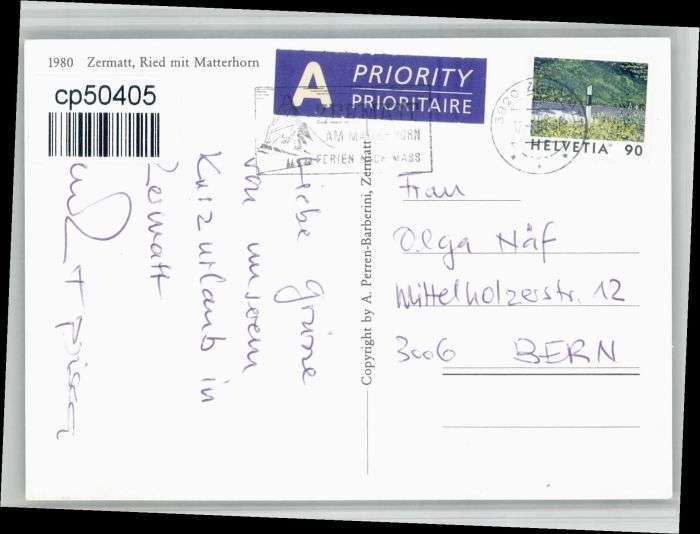 1980 Zermatt, Ried mit Matterhorn
cp50405
A PRIORITY
PRIORITAIRE
ZERMATT
AM MATTERHORN
FERIEN NACH MASS
3920
HELVETIA 90
Liebe Grüsse
von unserem
Kurzurlaub in
Zermatt
Copyright by A. Perren-Barberini, Zermatt
Frau
Olga Näf
Mittelholzerstr. 12
3006 BERN